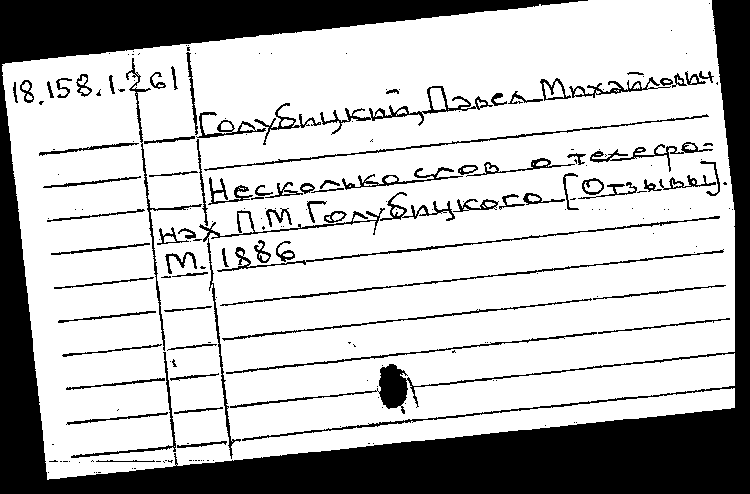 18.158.1.261
Голубицкий, Павел Михайлович.
Несколько слов о телефо=
нах П.М. Голубицкого [Отзывы].
М. 1886